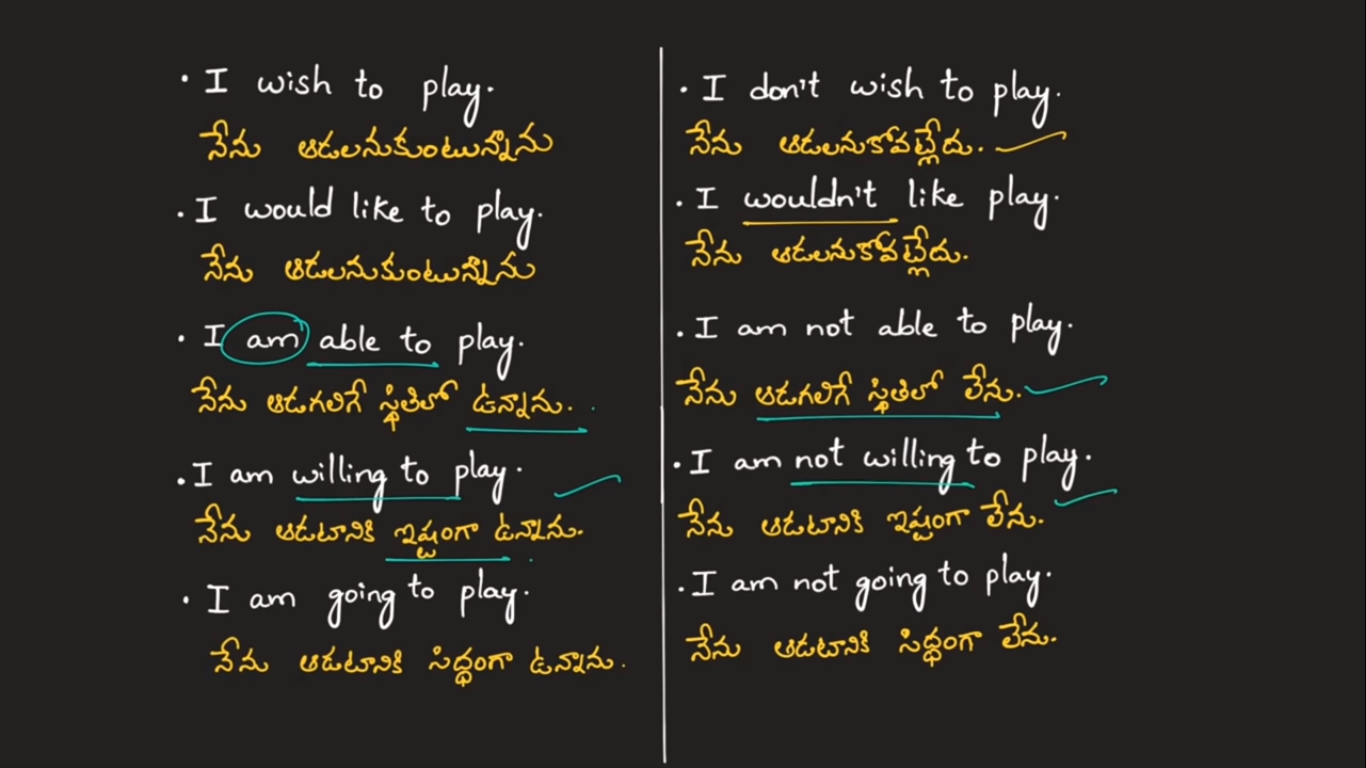 • I wish to play.
నేను ఆడలనుకుంటున్నాను
• I would like to play.
నేను ఆడలనుకుంటున్నాను
• I am able to play.
నేను ఆడగలిగే స్థితిలో ఉన్నాను.
• I am willing to play.
నేను ఆడటానికి ఇష్టంగా ఉన్నాను.
• I am going to play.
నేను ఆడటానికి సిద్ధంగా ఉన్నాను.
• I don't wish to play.
నేను ఆడలనుకోవట్లేదు.
• I wouldn't like play.
నేను ఆడలనుకోవట్లేదు.
• I am not able to play.
నేను ఆడగలిగే స్థితిలో లేను.
• I am not willing to play.
నేను ఆడటానికి ఇష్టంగా లేను.
• I am not going to play.
నేను ఆడటానికి సిద్ధంగా లేను.